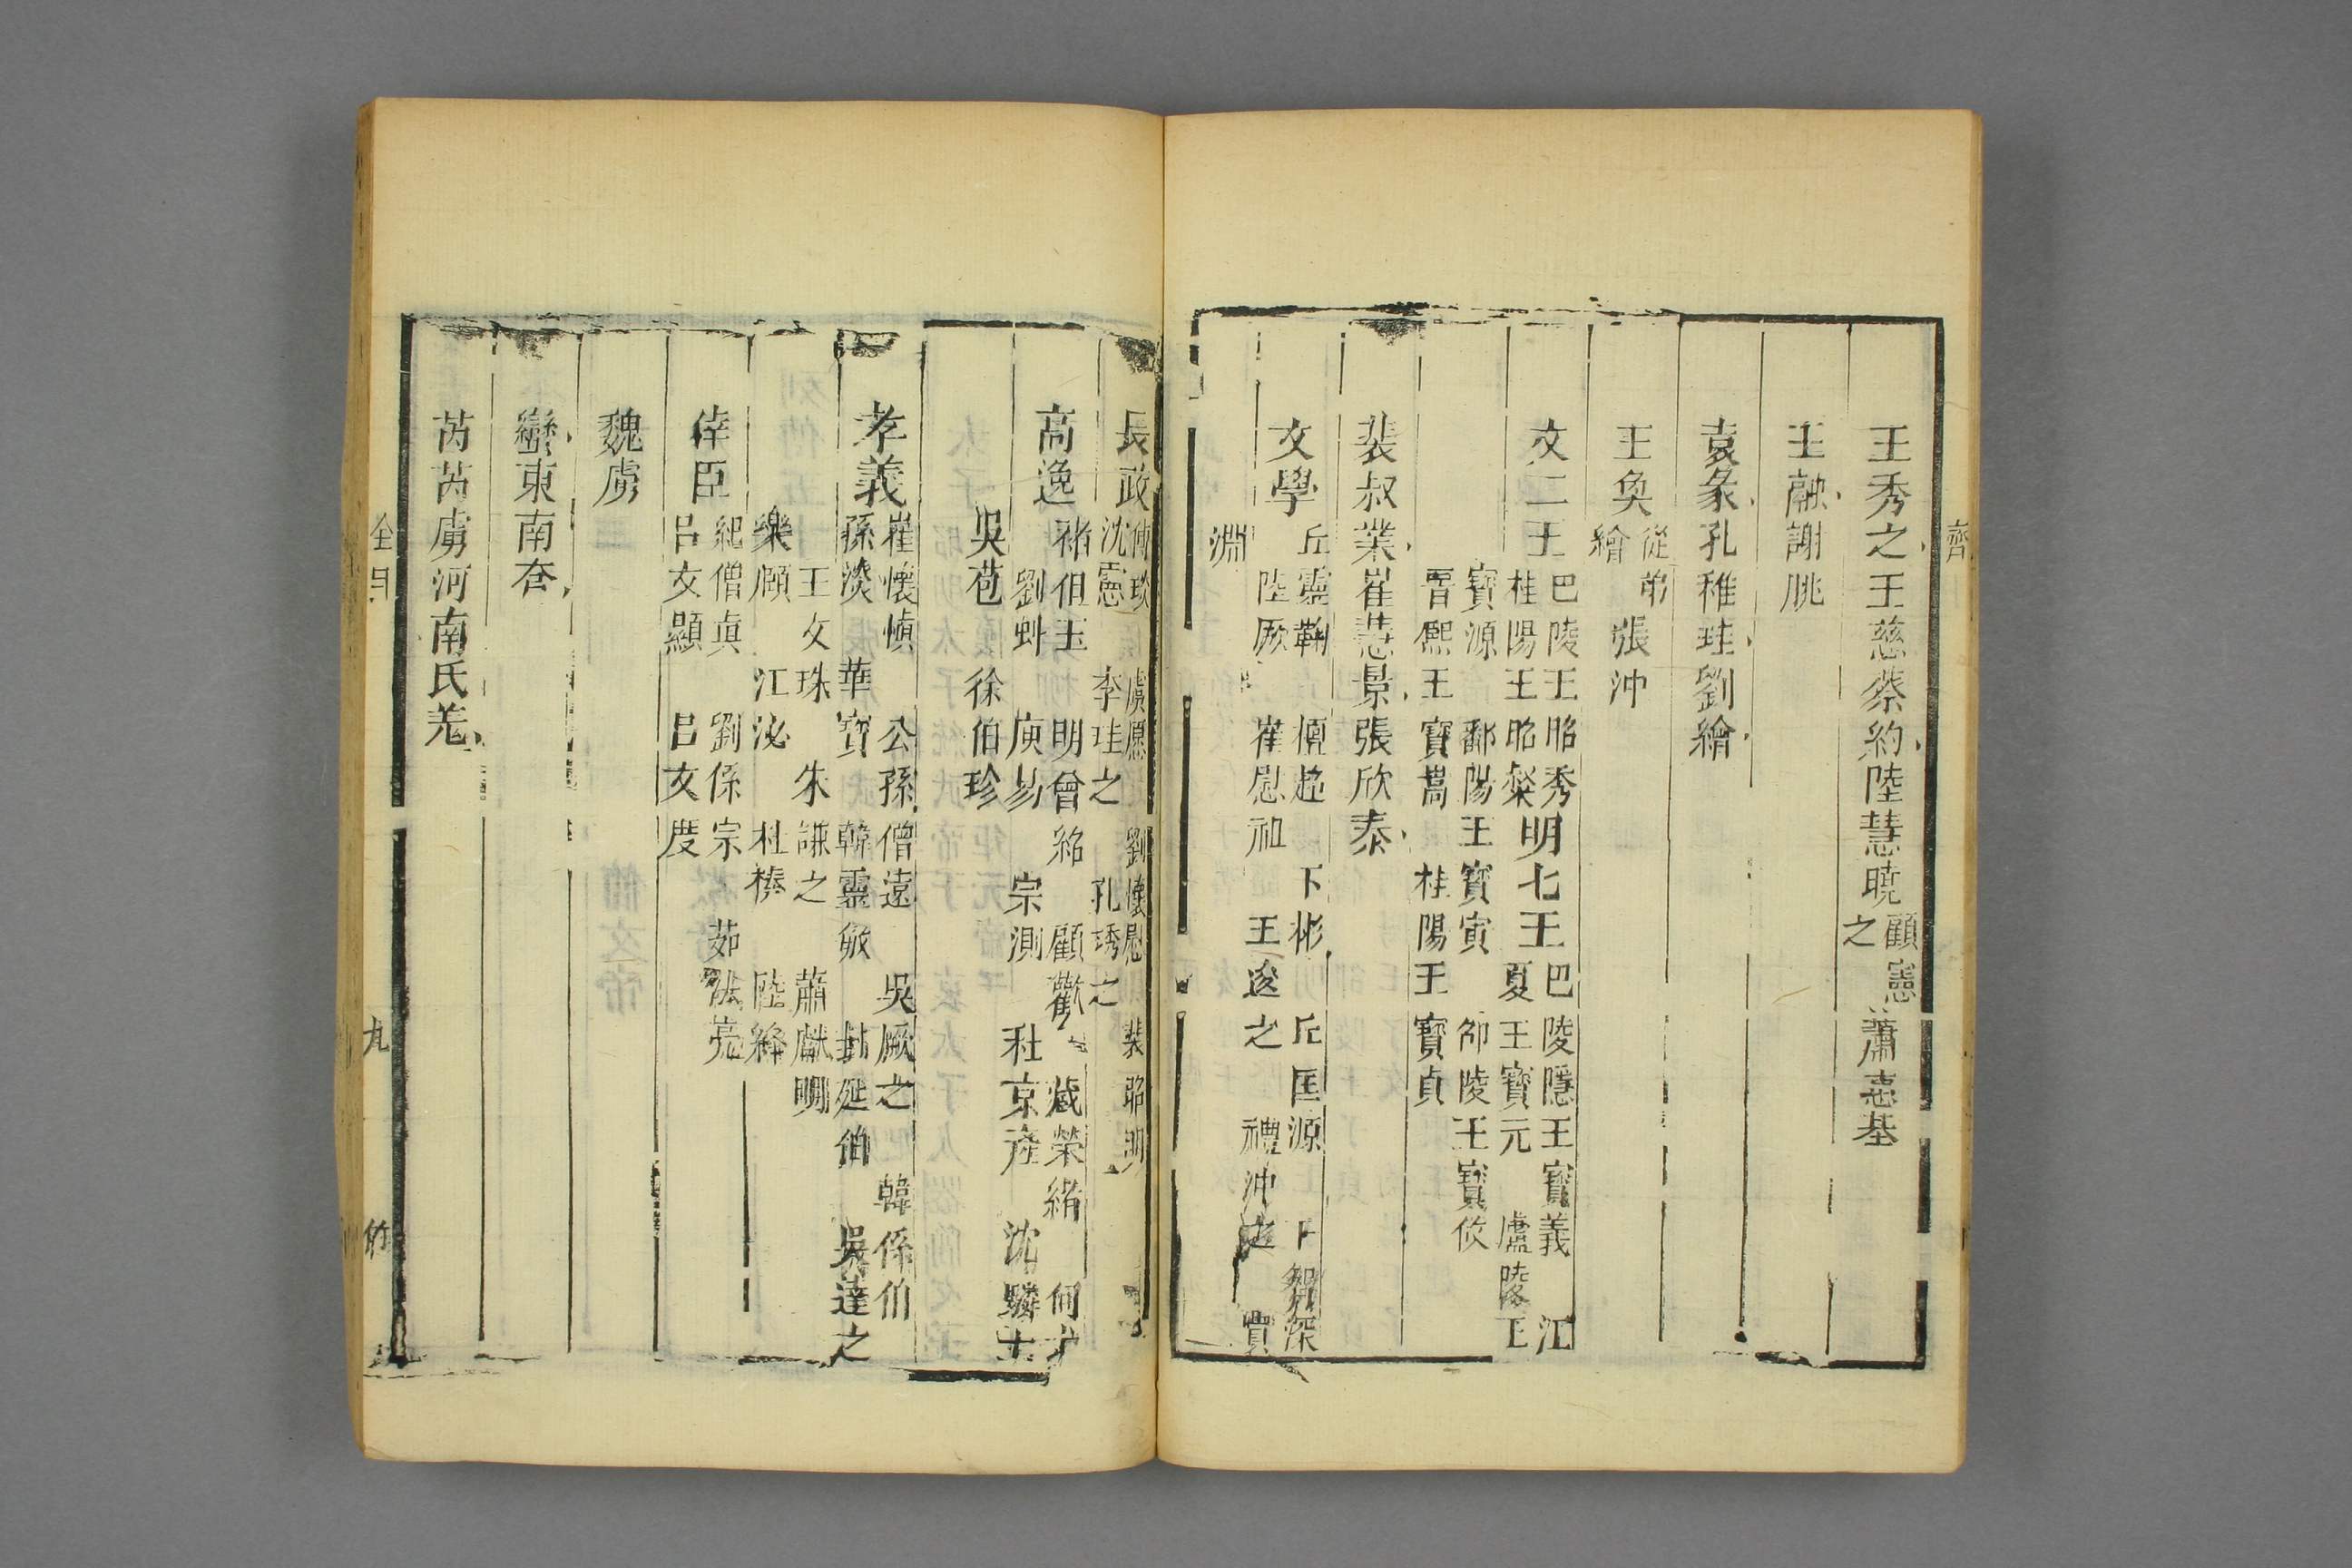 齊
王秀之王慈蔡約陸慧曉顧憲之蕭惠基
王融謝朓
袁彖孔稚珪劉繪
王奐從弟繢張沖
文二王巴陵王昭秀桂陽王昭粲明七王巴陵隱王寶義江夏王寶元盧陵王
寶源鄱陽王寶寅邵陵王寶攸晉熙王寶嵩桂陽王寶貞
裴叔業崔慧景張欣泰
文學丘靈鞠檀超卞彬丘巨源王智深陸厥崔慰祖王逡之禮沖之賈
淵
良政傅琰虞愿劉懷慰裴昭明沈憲李珪之孔琇之
高逸褚伯玉明曾紹顧歡臧榮緒何求劉虯庾易宗測杜京產沈驎士
吳苞徐伯珍
孝義崔懷慎公孫僧遠吳欣之韓係伯孫淡華寶韓靈敏封延伯吳達之
王文珠朱謙之蕭叡明樂頤江泌杜棲陸絳
倖臣紀僧真劉係宗茹法亮呂文顯呂文度
魏虜
蠻東南夷
芮芮虜河南氏羌
全目
九